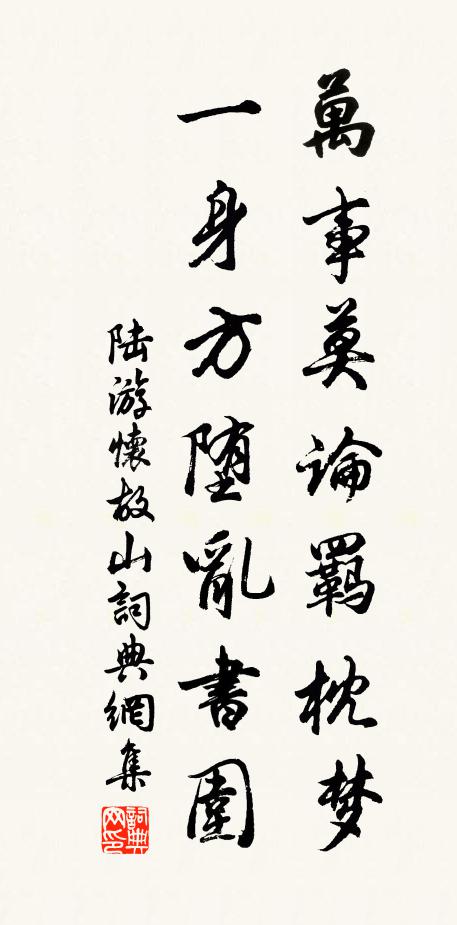 萬事莫論羈枕梦
一身方堕亂書圍
陆游懷故山詞典網集
詞典网印